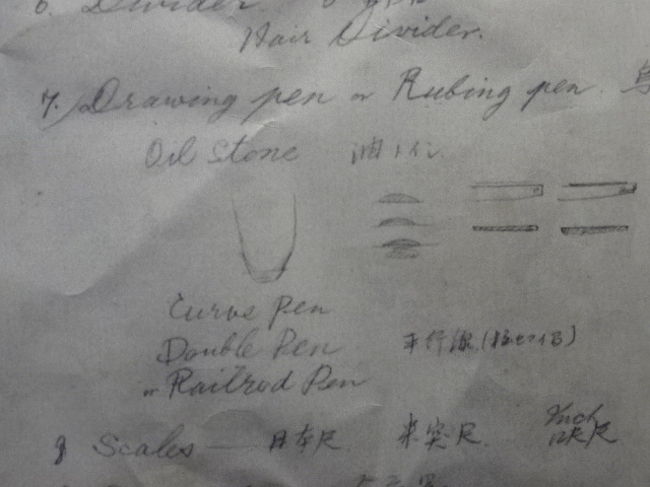 6. Divider.
Hair Divider.
7. Drawing pen or Rubing pen. 烏
Oil Stone 油トイシ
Curve Pen
Double Pen 平行線
or Railrod Pen
8 Scales — 日本尺. 米突尺. Inch 呎尺